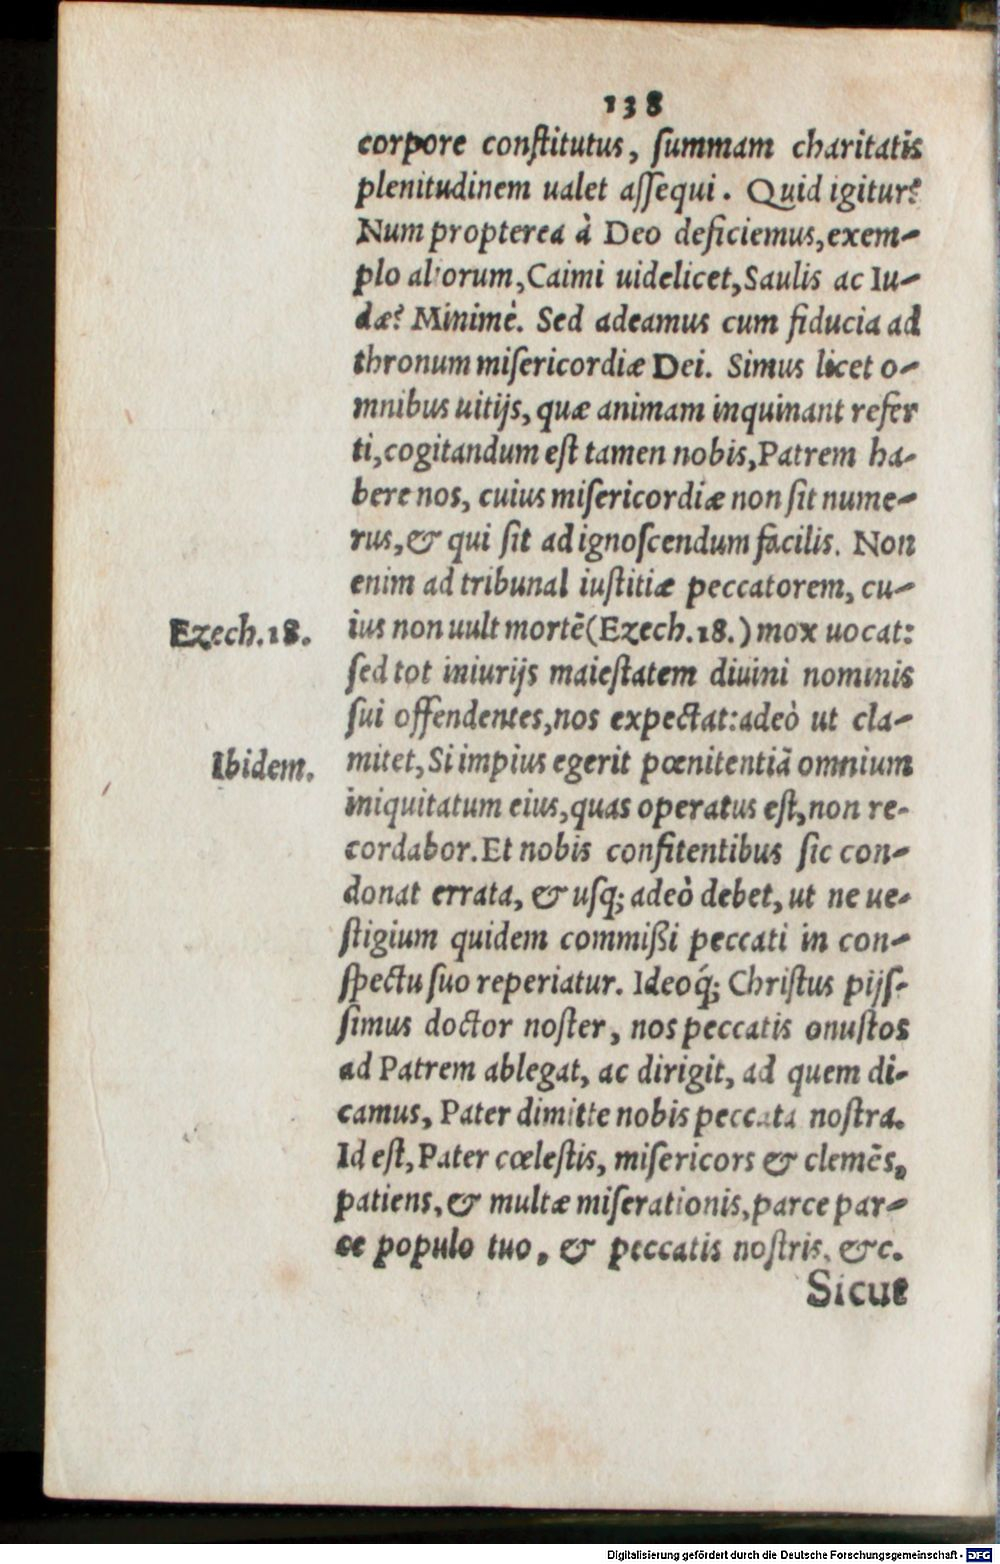 138
corpore conſtitutus, ſummam charitatis
plenitudinem ualet aſſequi. Quid igitur?
Num propterea à Deo deficiemus, exem-
plo aliorum, Caimi uidelicet, Saulis ac Iu-
dæ? Minimè. Sed adeamus cum fiducia ad
thronum miſericordiæ Dei. Simus licet o-
mnibus uitijs, quæ animam inquinant refer
ti, cogitandum eſt tamen nobis, Patrem ha-
bere nos, cuius miſericordiæ non ſit nume-
rus, & qui ſit ad ignoſcendum facilis. Non
enim ad tribunal iuſtitiæ peccatorem, cu-
Ezech.18. ius non uult mortē (Ezech.18.) mox uocat:
ſed tot iniurijs maieſtatem diuini nominis
ſui offendentes, nos expectat: adeò ut cla-
Ibidem. mitet, Si impius egerit pœnitentiā omnium
iniquitatum eius, quas operatus eſt, non re-
cordabor. Et nobis confitentibus ſic con-
donat errata, & uſq; adeò debet, ut ne ue-
ſtigium quidem commißi peccati in con-
ſpectu ſuo reperiatur. Ideoq́; Chriſtus pijſ-
ſimus doctor noſter, nos peccatis onuſtos
ad Patrem ablegat, ac dirigit, ad quem di-
camus, Pater dimitte nobis peccata noſtra.
Id eſt, Pater cœleſtis, miſericors & clemēs,
patiens, & multæ miſerationis, parce par-
ce populo tuo, & peccatis noſtris, &c.
Sicut
Digitalisierung gefördert durch die Deutsche Forschungsgemeinschaft - DFG